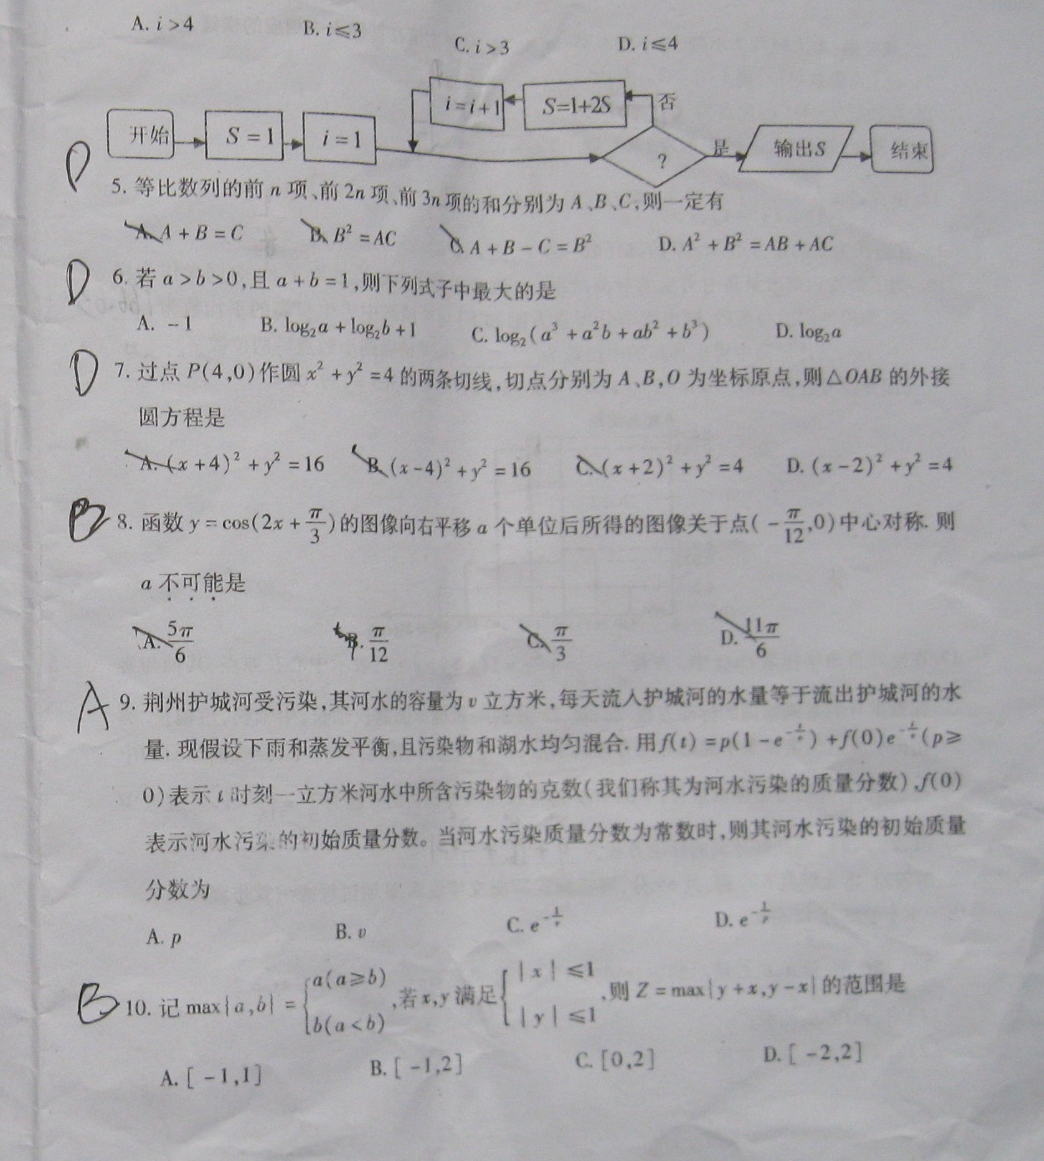 A. i>4 B. i≤3 C. i>3 D. i≤4
i=i+1 S=1+2S 否
开始 S=1 i=1 ? 是 输出S 结束
D
5. 等比数列的前 n 项、前 2n 项、前 3n 项的和分别为 A、B、C,则一定有
A. A+B=C B. B²=AC C. A+B-C=B² D. A²+B²=AB+AC
D 6. 若 a>b>0,且 a+b=1,则下列式子中最大的是
A. -1 B. log₂a+log₂b+1 C. log₂(a³+a²b+ab²+b³) D. log₂a
D 7. 过点 P(4,0)作圆 x²+y²=4 的两条切线,切点分别为 A、B,O 为坐标原点,则△OAB 的外接
圆方程是
A. (x+4)²+y²=16 B. (x-4)²+y²=16 C. (x+2)²+y²=4 D. (x-2)²+y²=4
B 8. 函数 y=cos(2x+π/3)的图像向右平移 a 个单位后所得的图像关于点(-π/12,0)中心对称. 则
a 不可能是
A. 5π/6 B. π/12 C. π/3 D. 11π/6
A 9. 荆州护城河受污染,其河水的容量为 v 立方米,每天流入护城河的水量等于流出护城河的水
量. 现假设下雨和蒸发平衡,且污染物和湖水均匀混合. 用f(t)=p(1-e )+f(0)e (p≥
0)表示 t 时刻一立方米河水中所含污染物的克数(我们称其为河水污染的质量分数),f(0)
表示河水污染的初始质量分数。当河水污染质量分数为常数时,则其河水污染的初始质量
分数为
A. p B. v C. e D. e
B 10. 记 max{a,b}={a(a≥b) b(a<b) ,若 x,y 满足{|x|≤1 |y|≤1 ,则 Z=max|y+x,y-x|的范围是
A. [-1,1] B. [-1,2] C. [0,2] D. [-2,2]